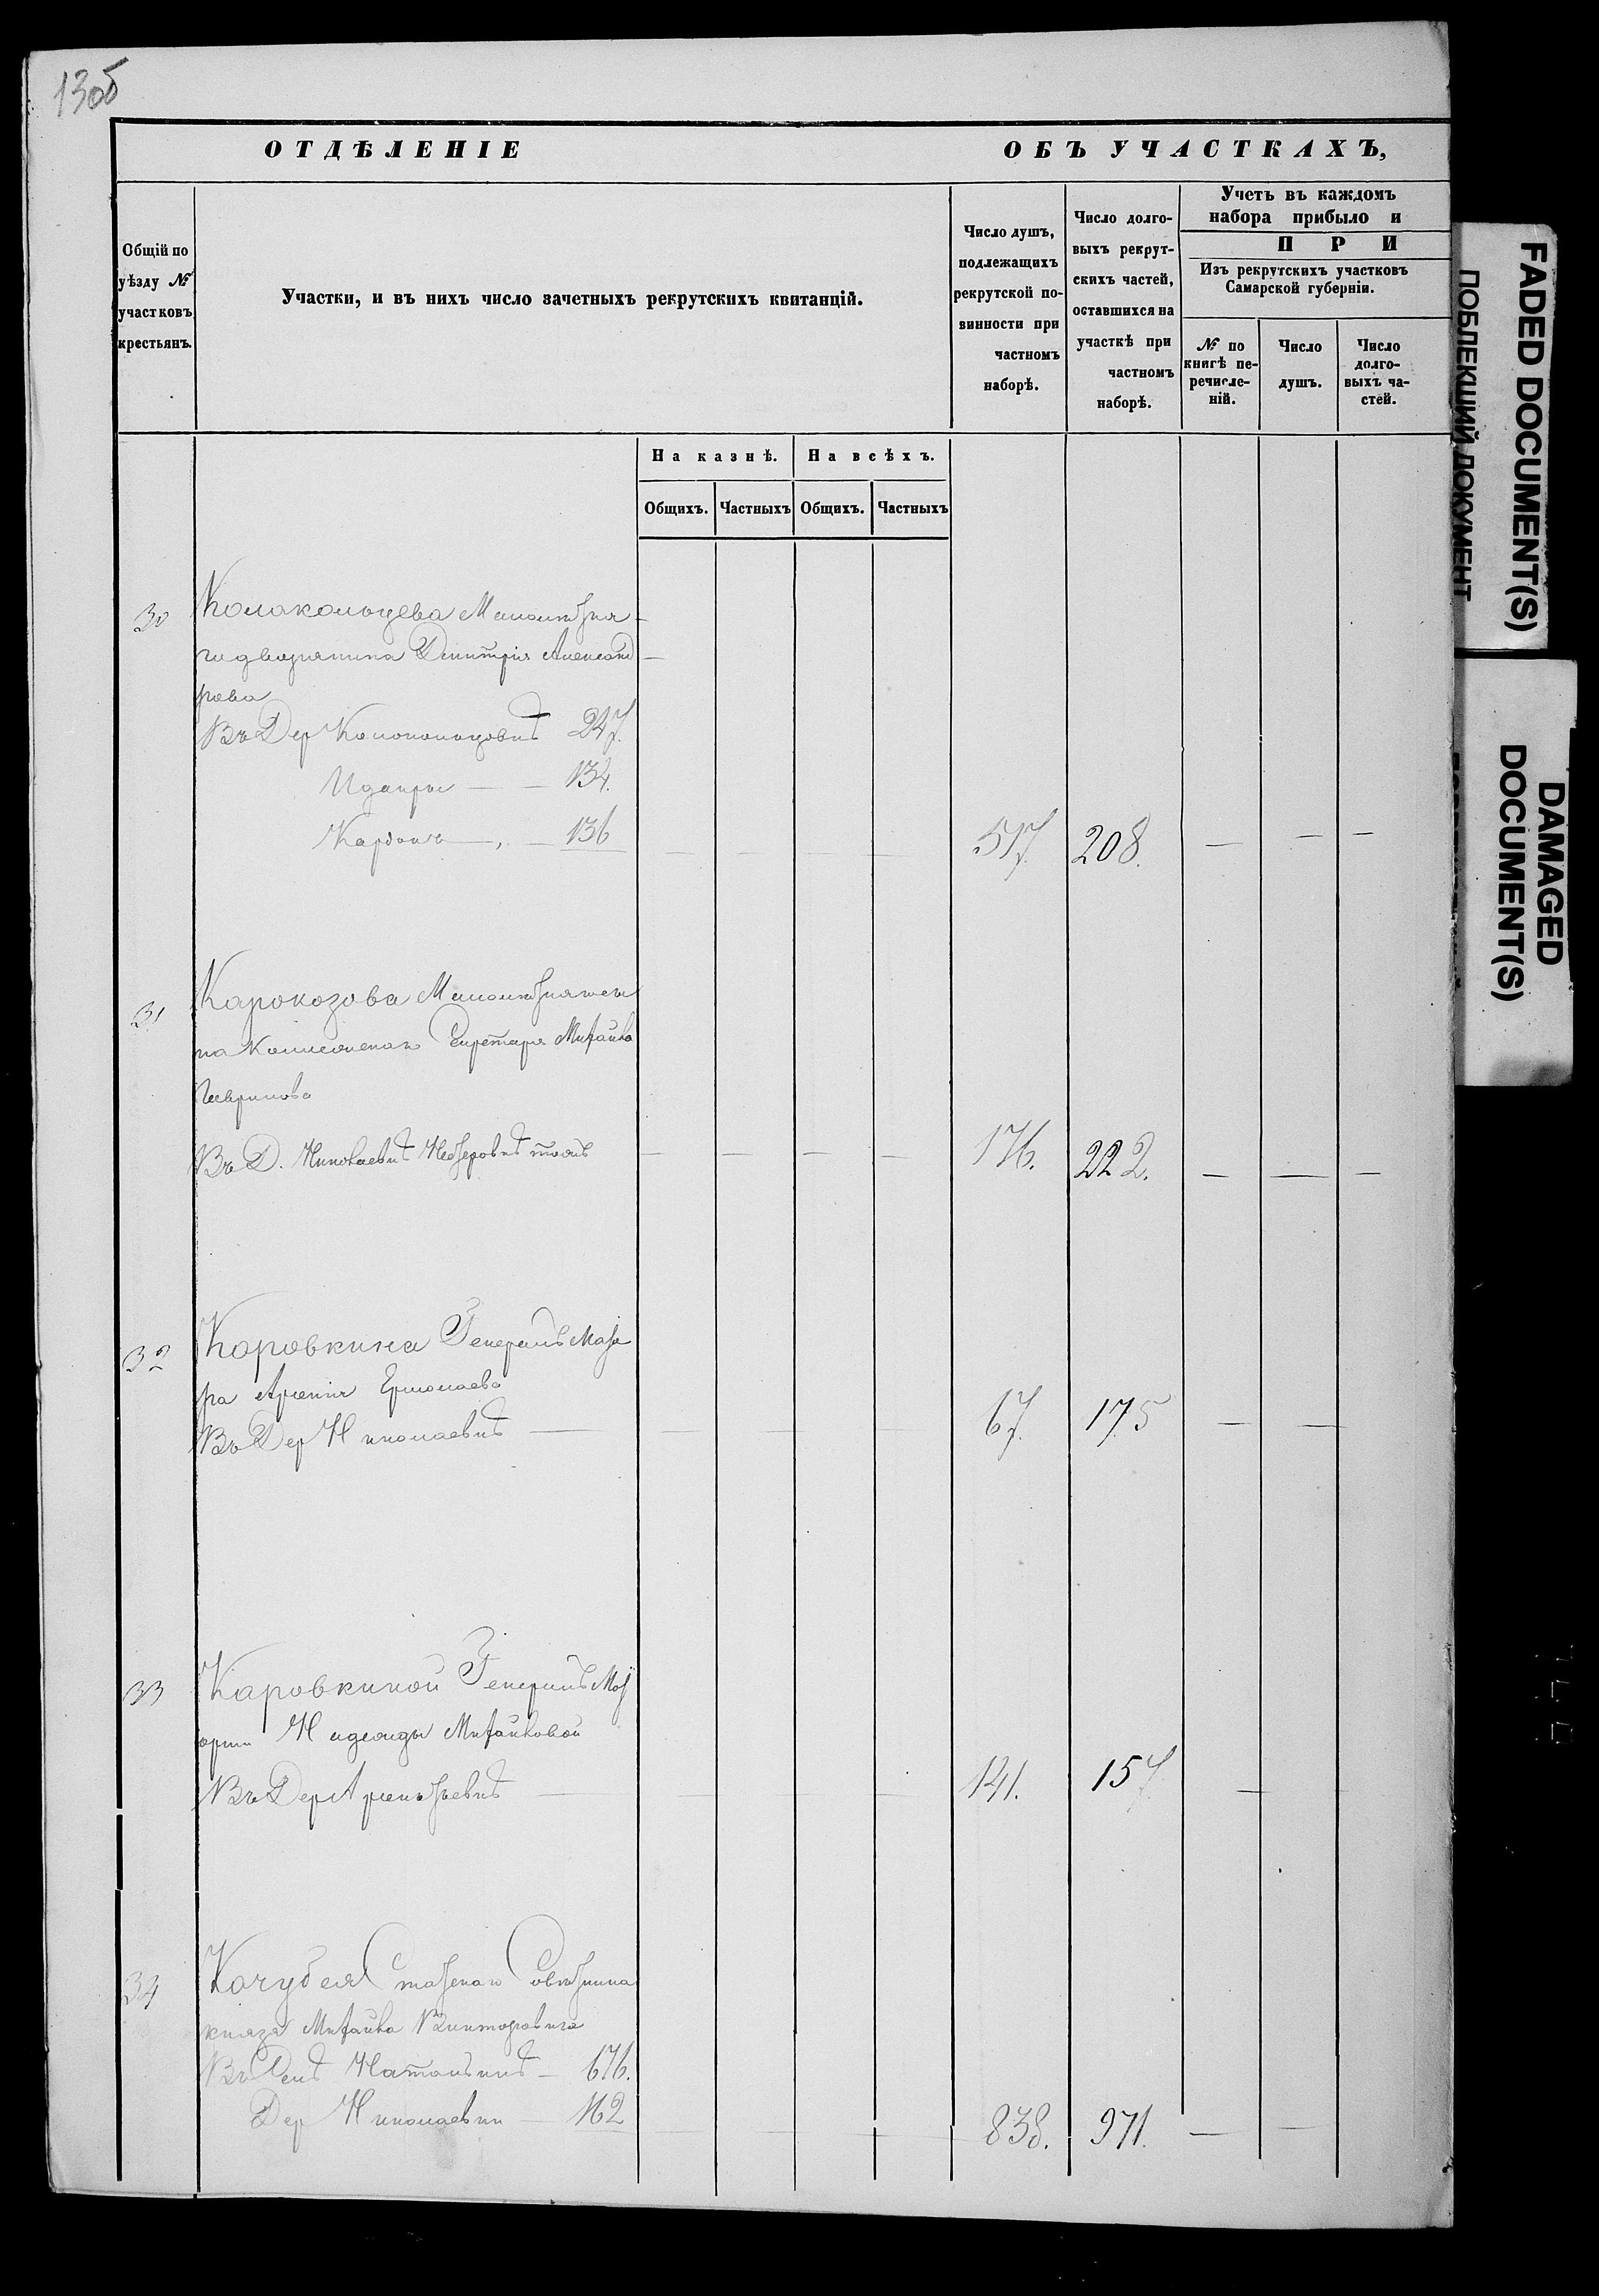 130б
ОТДѢЛЕНІЕ ОБЪ УЧАСТКАХЪ,
Общій по
уѣзду №
участковъ
крестьянъ.
Участки, и въ нихъ число зачетныхъ рекрутскихъ квитанцій.
Число душъ,
подлежащихъ
рекрутской по-
винности при
частномъ
наборѣ.
Число долго-
выхъ рекрут-
скихъ частей,
оставшихся на
участкѣ при
частномъ
наборѣ.
Учетъ въ каждомъ
набора прибыло и
ПРИ
Изъ рекрутскихъ участковъ
Самарской губерніи.
№ по
книгѣ пе-
речисле-
ній.
Число
душъ.
Число
долго-
выхъ ча-
стей.
На казнѣ. На всѣхъ.
Общихъ. Частныхъ Общихъ. Частныхъ
30 Колокольцева Малолѣтня-
го дворянина Дмитрія Александ
рова
Въ Дер Колокольцовкѣ 247.
134.
136 517 208.
31 Карокозова
Коллежскаго Секретаря Михайла
Гаврилова
Въ Д. Николаевкѣ тожъ 176. 222.
32 Коровкина Генералъ Маіо
ра Арсенія Ермолаева
Въ Дер Николаевкѣ 67. 175
33 Каровкиной Генералъ Маі
орши Надежды Михайловой
Въ Дер Арсентьевкѣ 141. 157.
34 Кочубея Статскаго Совѣтника
князя Михайла Викторовича
Въ Селѣ Натальинѣ 676.
Дер Николаевки 162 838. 971.
FADED DOCUMENT(S)
ПОБЛЕКШИЙ ДОКУМЕНТ
DAMAGED
DOCUMENT(S)